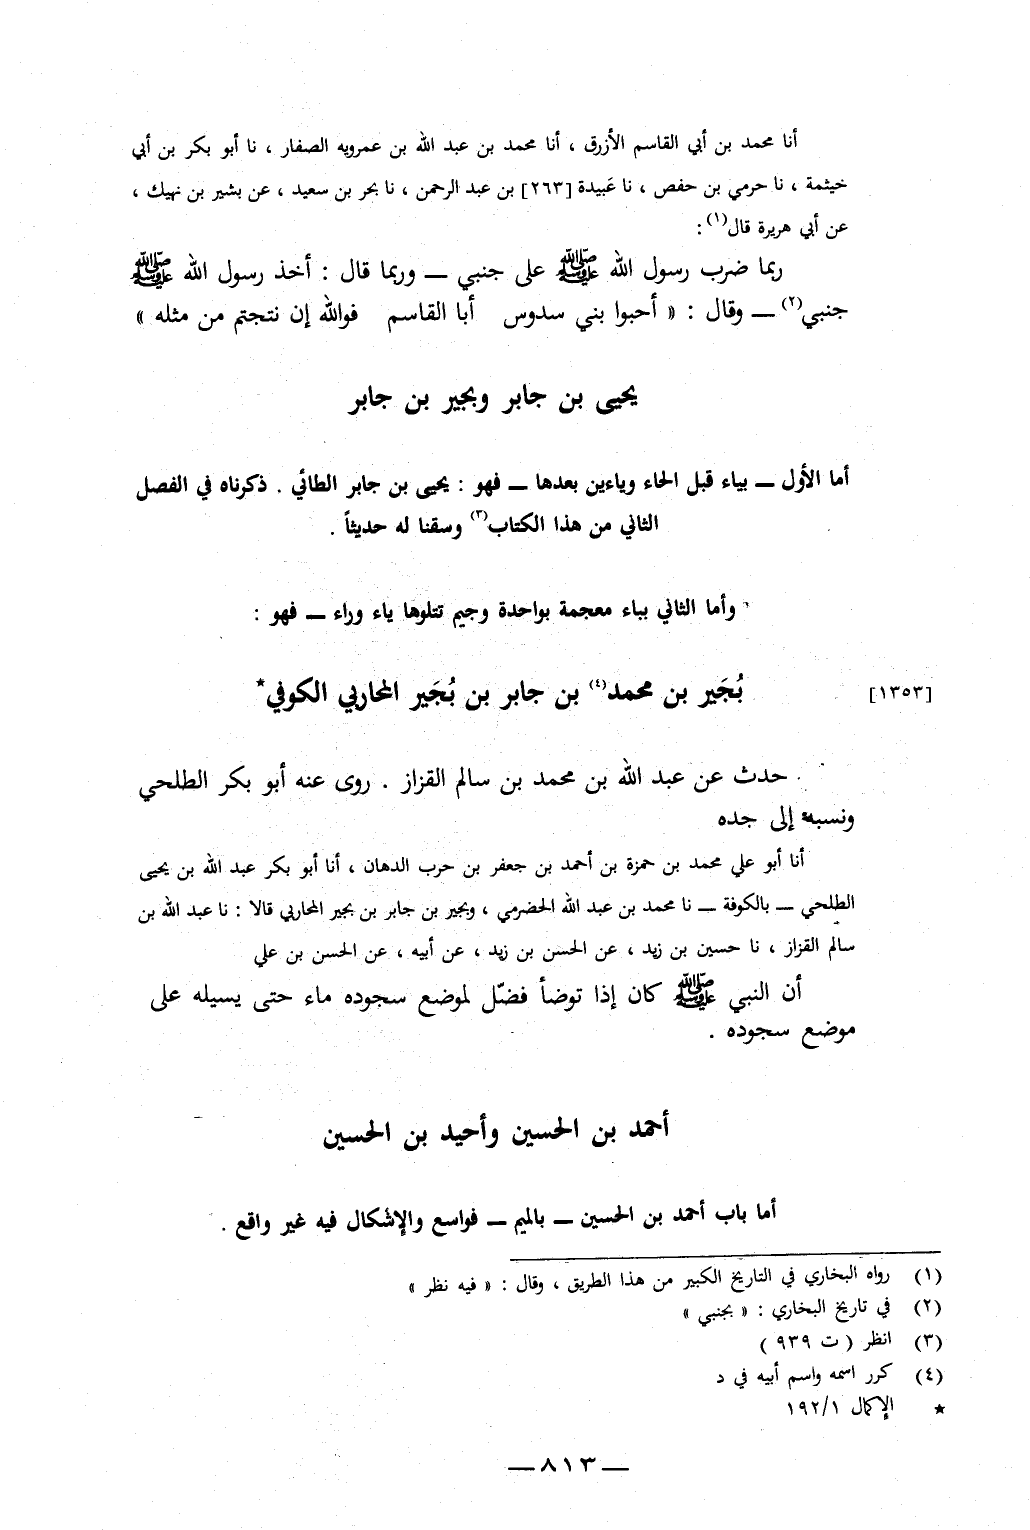 أنا محمد بن أبي القاسم الأزرق ، أنا محمد بن عبد الله بن عمرويه الصفار ، نا أبو بكر بن أبي
خيثمة ، نا حرمي بن حفص ، نا عَبيدة [٢٦٣] بن عبد الرحمن ، نا بحر بن سعيد ، عن بشير بن نهيك ،
عن أبي هريرة قال(١) :
ربما ضرب رسول الله ﷺ على جنبي ــ وربما قال : أخذ رسول الله ﷺ
جنبي(٢) ــ وقال : « أحبوا بني سدوس أبا القاسم فوالله إن نتجتم من مثله »
يحيى بن جابر وبجير بن جابر
أما الأول ــ بياء قبل الحاء وياءين بعدها ــ فهو : يحيى بن جابر الطائي . ذكرناه في الفصل
الثاني من هذا الكتاب(٣) وسقنا له حديثاً .
وأما الثاني بباء معجمة بواحدة وجيم تتلوها ياء وراء ــ فهو :
[١٣٥٣] بُجَير بن محمد(٤) بن جابر بن بُجَير المحاربي الكوفي*
حدث عن عبد الله بن محمد بن سالم القزاز . روى عنه أبو بكر الطلحي
ونسبه إلى جده
أنا أبو علي محمد بن حمزة بن أحمد بن جعفر بن حرب الدهان ، أنا أبو بكر عبد الله بن يحيى
الطلحي ــ بالكوفة ــ نا محمد بن عبد الله الحضرمي ، وبجير بن جابر بن بجير المحاربي قالا : نا عبد الله بن
سالم القزاز ، نا حسين بن زيد ، عن الحسن بن زيد ، عن أبيه ، عن الحسن بن علي
أن النبي ﷺ كان إذا توضأ فضّل لموضع سجوده ماء حتى يسيله على
موضع سجوده .
أحمد بن الحسين وأحيد بن الحسين
أما باب أحمد بن الحسين ــ بالميم ــ فواسع والإشكال فيه غير واقع .
(١) رواه البخاري في التاريخ الكبير من هذا الطريق ، وقال : « فيه نظر »
(٢) في تاريخ البخاري : « بجنبي »
(٣) انظر ( ت ٩٣٩ )
(٤) كرر اسمه واسم أبيه في د
* الإكمال ١٩٢/١
ــ ٨١٣ ــ